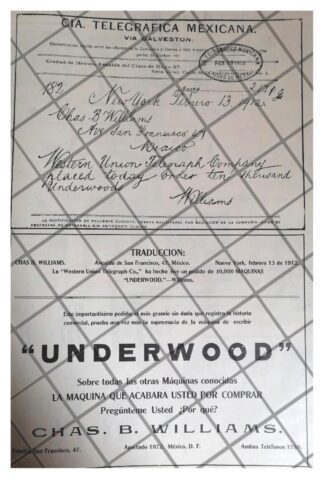 CIA. TELEGRAFICA MEXICANA.
VIA GALVESTON.
Ciudad de Mexico, Avenida del Cinco de Mayo, 67.
Vera Cruz, Calle
FEB 13 1912
182
New York Febrero 13, 1912
Chas B Williams
Ave San Francisco 47
Mexico
Western Union Telegraph Company
placed today order ten thousand
Underwoods
Williams
TRADUCCION:
CHAS B. WILLIAMS. Avenida de San Francisco, 47, México. Nueva York, febrero 13 de 1912.
La "Western Union Telegraph Co.," ha hecho hoy un pedido de 10,000 MAQUINAS
"UNDERWOOD."—Williams.
Este importantísimo pedido, el más grande sin duda que registra la historia
comercial, prueba una vez más la supremacía de la máquina de escribir
"UNDERWOOD"
Sobre todas las otras Máquinas conocidas
LA MAQUINA QUE ACABARA USTED POR COMPRAR
Pregúnteme Usted ¿Por qué?
CHAS. B. WILLIAMS.
San Francisco, 47. Apartado 1872, México, D. F. Ambos Teléfonos